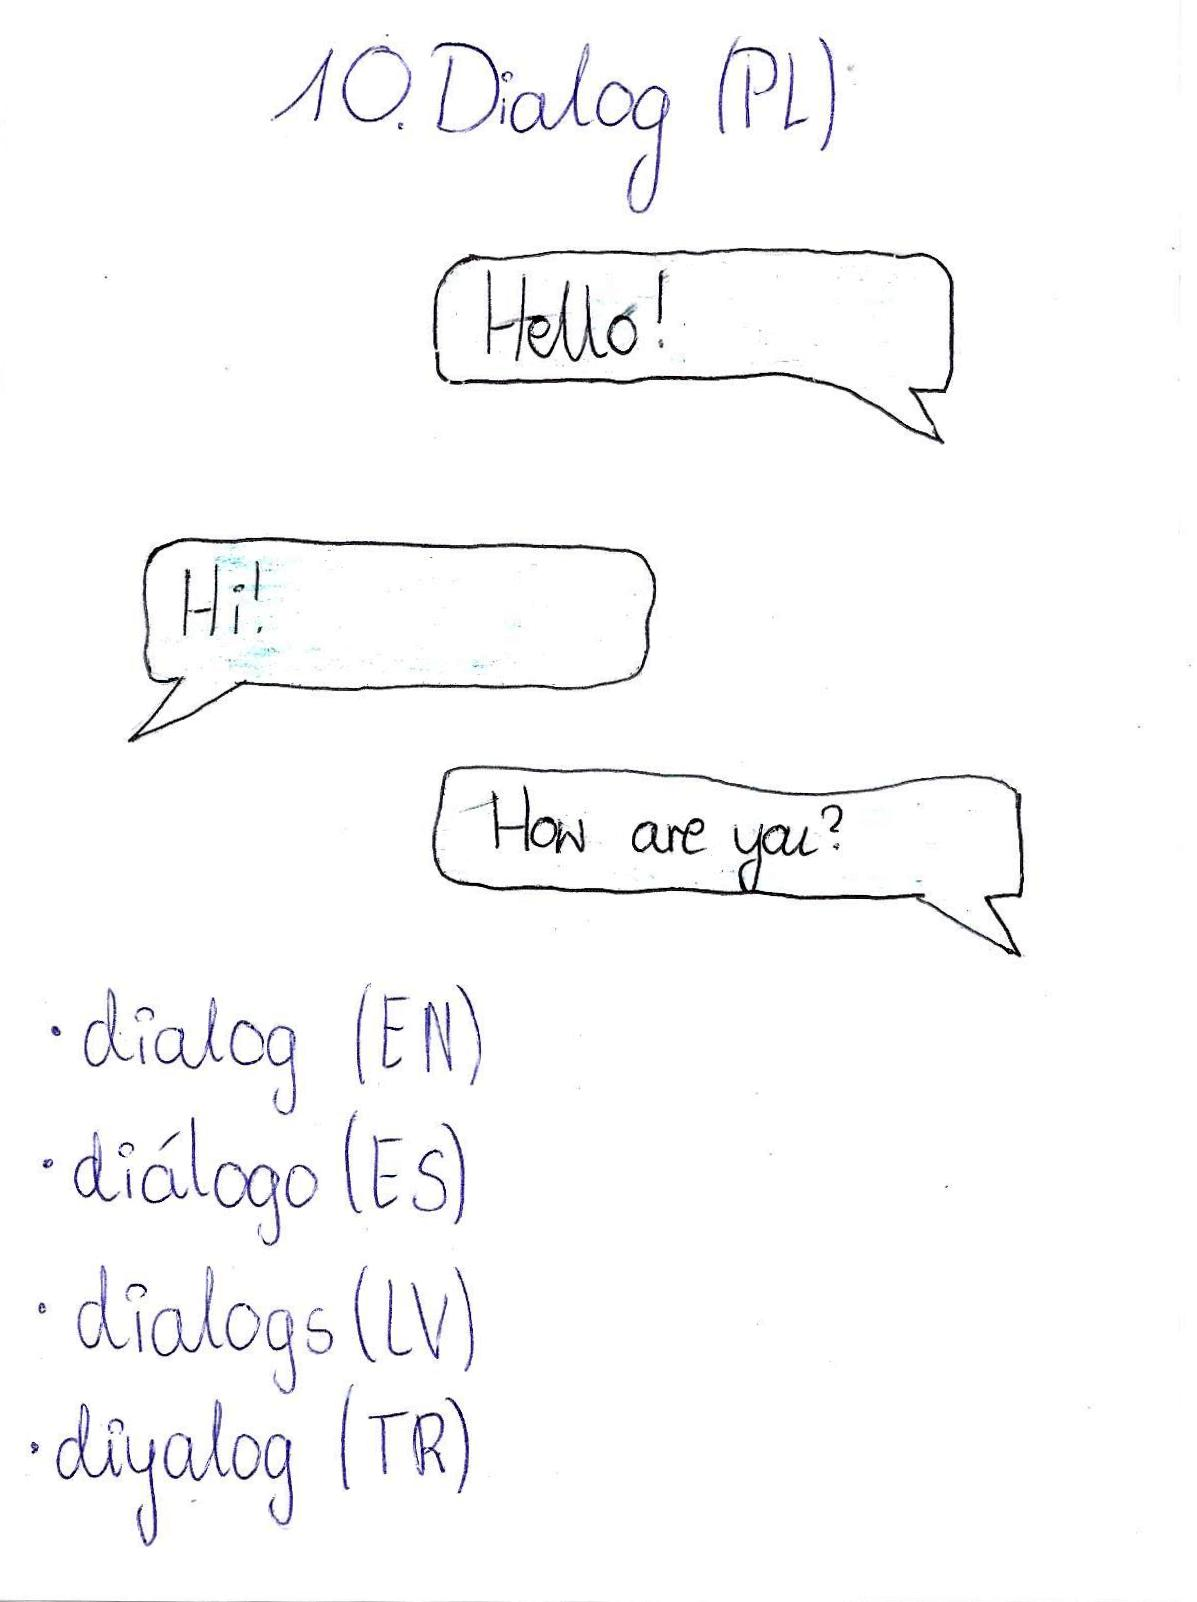 10. Dialog (PL)
Hello!
Hi!
How are you?
• dialog (EN)
• diálogo (ES)
• dialogs (LV)
• diyalog (TR)